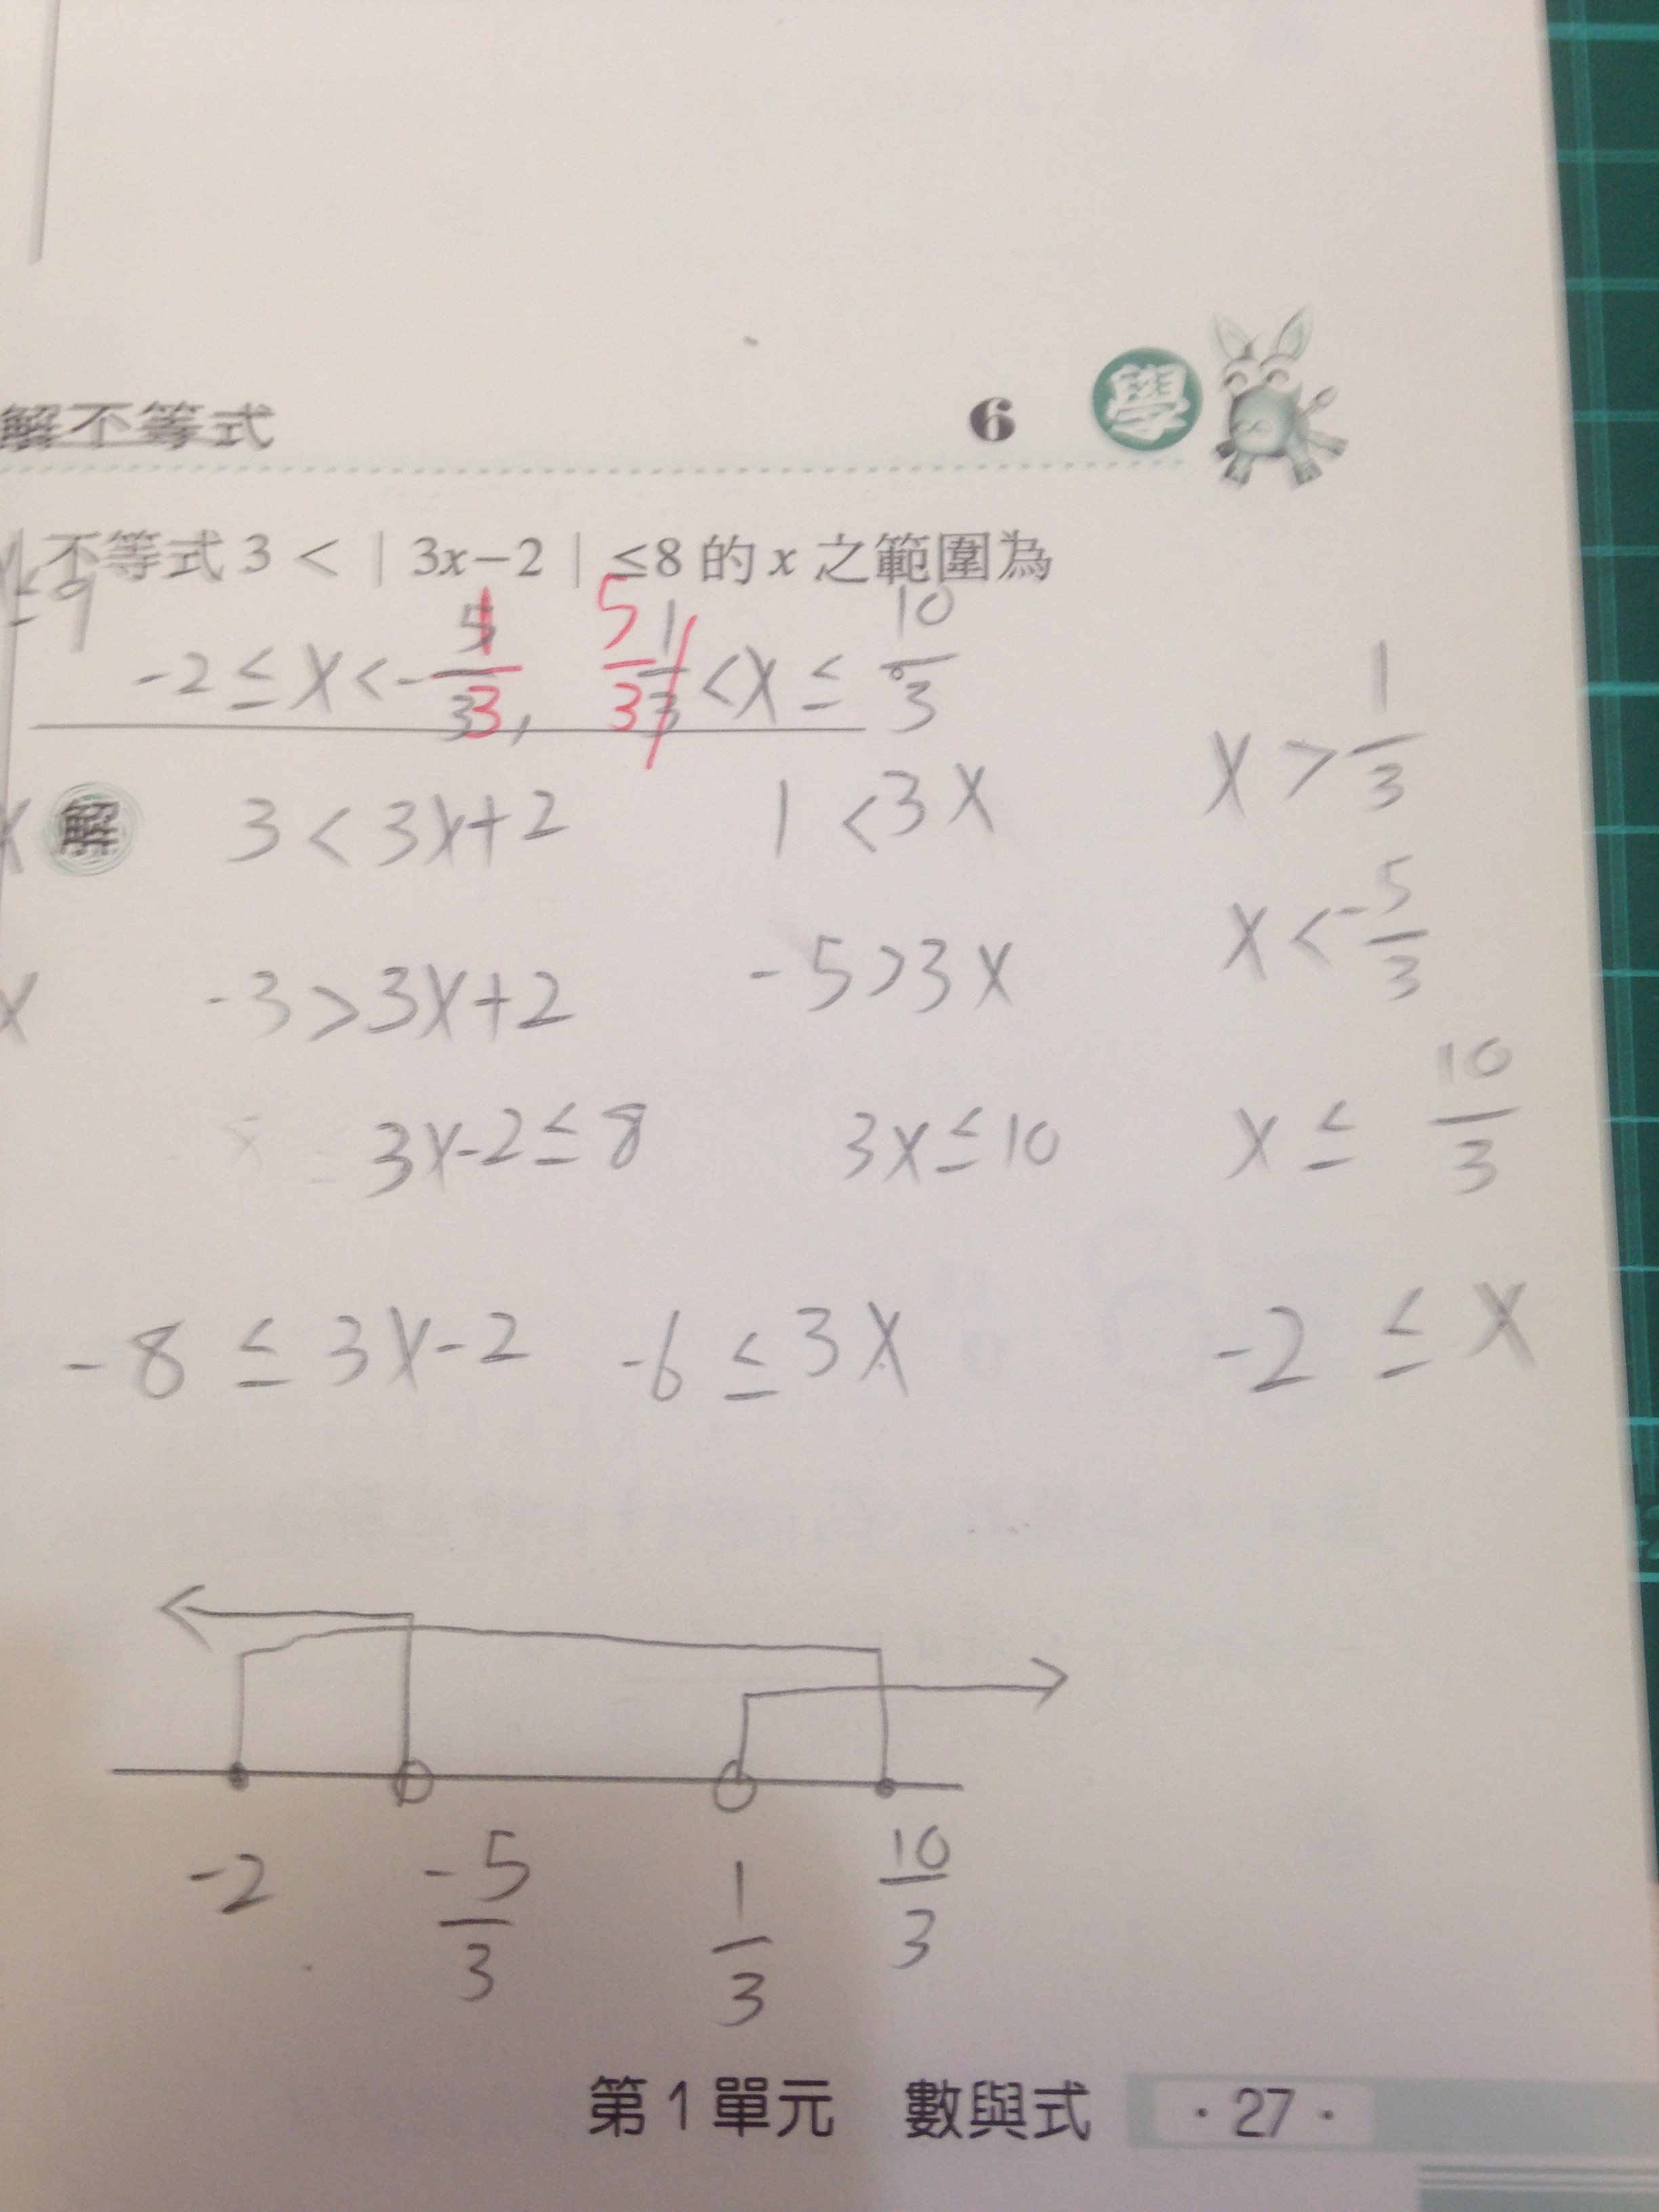 解不等式 6 學
不等式 3 < | 3x−2 | ≤8 的 x 之範圍為
≤9
-2 ≤ x < -1/3, 5/3 < x ≤ 10/3 。
解 3 < 3x+2 1 < 3x x > 1/3
-3 > 3x+2 -5 > 3x x < -5/3
3x-2 ≤ 8 3x ≤ 10 x ≤ 10/3
-8 ≤ 3x-2 -6 ≤ 3x -2 ≤ x
-2 -5/3 1/3 10/3
第1單元 數與式 ·27·